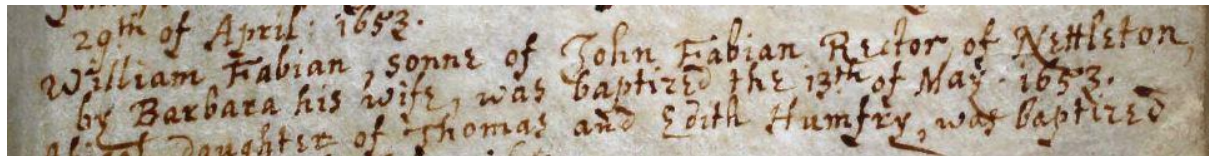 29th of April: 1653.
William Fabian, sonne of John Fabian Rector of Nettleton,
by Barbara his wife, was baptized the 13th of May. 1653.
daughter of Thomas and Edith Humfry, was baptized